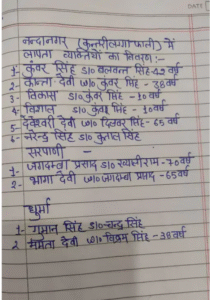 नन्दानगर (कुन्तरीलगाफाली) में
लापता व्यक्तियों का विवरण:-
1- कुंवर सिंह S/o बलवन्त सिंह-42 वर्ष
2- कान्ता देवी w/o कुंवर सिंह - 38 वर्ष
3- विकास S/o कुंवर सिंह - 10 वर्ष
4- विशाल S/o कुंवर सिंह - 10 वर्ष
5- देवेश्वरी देवी w/o दिलबर सिंह - 65 वर्ष
6- नरेन्द्र सिंह S/o कुताल सिंह
सरपाणी -
1- जगदम्बा प्रसाद S/o ख्यालीराम - 70 वर्ष
2- भागा देवी w/o जगदम्बा प्रसाद - 65 वर्ष
धुर्मा
1- गुमान सिंह S/o चन्द्र सिंह
2- ममता देवी w/o विक्रम सिंह - 38 वर्ष